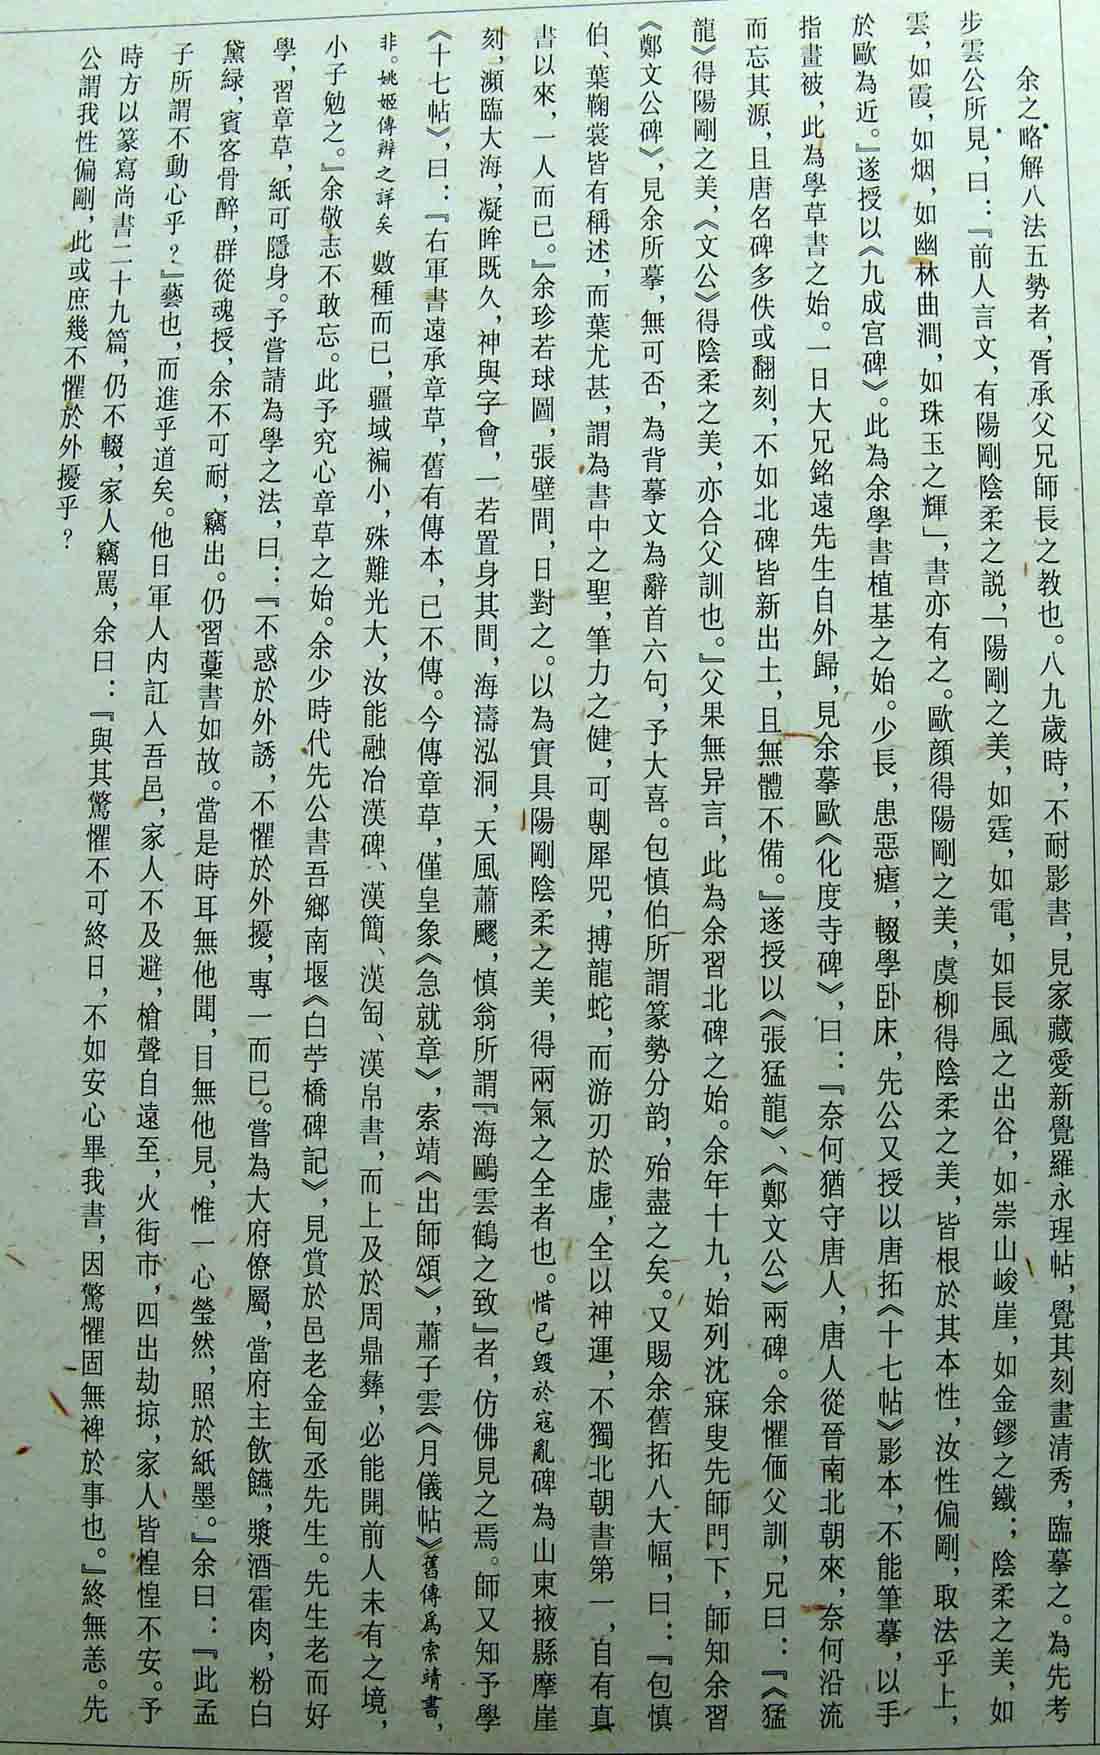 余之略解八法五勢者，胥承父兄師長之教也。八九歲時，不耐影書，見家藏愛新覺羅永瑆帖，覺其刻畫清秀，臨摹之。為先考
步雲公所見，曰：『前人言文，有陽剛陰柔之説，「陽剛之美，如霆，如電，如長風之出谷，如崇山峻崖，如金鏐之鐵；陰柔之美，如
雲，如霞，如烟，如幽林曲澗，如珠玉之輝」，書亦有之。歐顔得陽剛之美，虞柳得陰柔之美，皆根於其本性，汝性偏剛，取法乎上，
於歐為近。』遂授以《九成宮碑》。此為余學書植基之始。少長，患惡瘧，輟學卧床，先公又授以唐拓《十七帖》影本，不能筆摹，以手
指畫被，此為學草書之始。一日大兄銘遠先生自外歸，見余摹歐《化度寺碑》，曰：『奈何猶守唐人，唐人從晉南北朝來，奈何沿流
而忘其源，且唐名碑多佚或翻刻，不如北碑皆新出土，且無體不備。』遂授以《張猛龍》、《鄭文公》兩碑。余懼偭父訓，兄曰：『《猛
龍》得陽剛之美，《文公》得陰柔之美，亦合父訓也。』父果無异言，此為余習北碑之始。余年十九，始列沈寐叟先師門下，師知余習
《鄭文公碑》，見余所摹，無可否，為背摹文為辭首六句，予大喜。包慎伯所謂篆勢分韵，殆盡之矣。又賜余舊拓八大幅，曰：『包慎
伯、葉鞠裳皆有稱述，而葉尤甚，謂為書中之聖，筆力之健，可剸犀兕，搏龍蛇，而游刃於虚，全以神運，不獨北朝書第一，自有真
書以來，一人而已。』余珍若球圖，張壁間，日對之。以為實具陽剛陰柔之美，得兩氣之全者也。惜已毀於寇亂碑為山東掖縣摩崖
刻，瀕臨大海，凝眸既久，神與字會，一若置身其間，海濤泓洞，天風蕭飋，慎翁所謂『海鷗雲鶴之致』者，仿佛見之焉。師又知予學
《十七帖》，曰：『右軍書遠承章草，舊有傳本，已不傳。今傳章草，僅皇象《急就章》，索靖《出師頌》，蕭子雲《月儀帖》舊傳爲索靖書，
非。姚姬傳辨之詳矣 數種而已，疆域褊小，殊難光大，汝能融冶漢碑、漢簡、漢匋、漢帛書，而上及於周鼎彝，必能開前人未有之境，
小子勉之。』余敬志不敢忘。此予究心章草之始。余少時代先公書吾鄉南堰《白苧橋碑記》，見賞於邑老金甸丞先生。先生老而好
學，習章草，紙可隱身。予嘗請為學之法，曰：『不惑於外誘，不懼於外擾，專一而已。嘗為大府僚屬，當府主飲讌，漿酒霍肉，粉白
黛緑，賓客骨醉，群從魂授，余不可耐，竊出。仍習藁書如故。當是時耳無他聞，目無他見，惟一心瑩然，照於紙墨。』余曰：『此孟
子所謂不動心乎？』藝也，而進乎道矣。他日軍人内訌入吾邑，家人不及避，槍聲自遠至，火街市，四出劫掠，家人皆惶惶不安。予
時方以篆寫尚書二十九篇，仍不輟，家人竊罵，余曰：『與其驚懼不可終日，不如安心畢我書，因驚懼固無裨於事也。』終無恙。先
公謂我性偏剛，此或庶幾不懼於外擾乎？